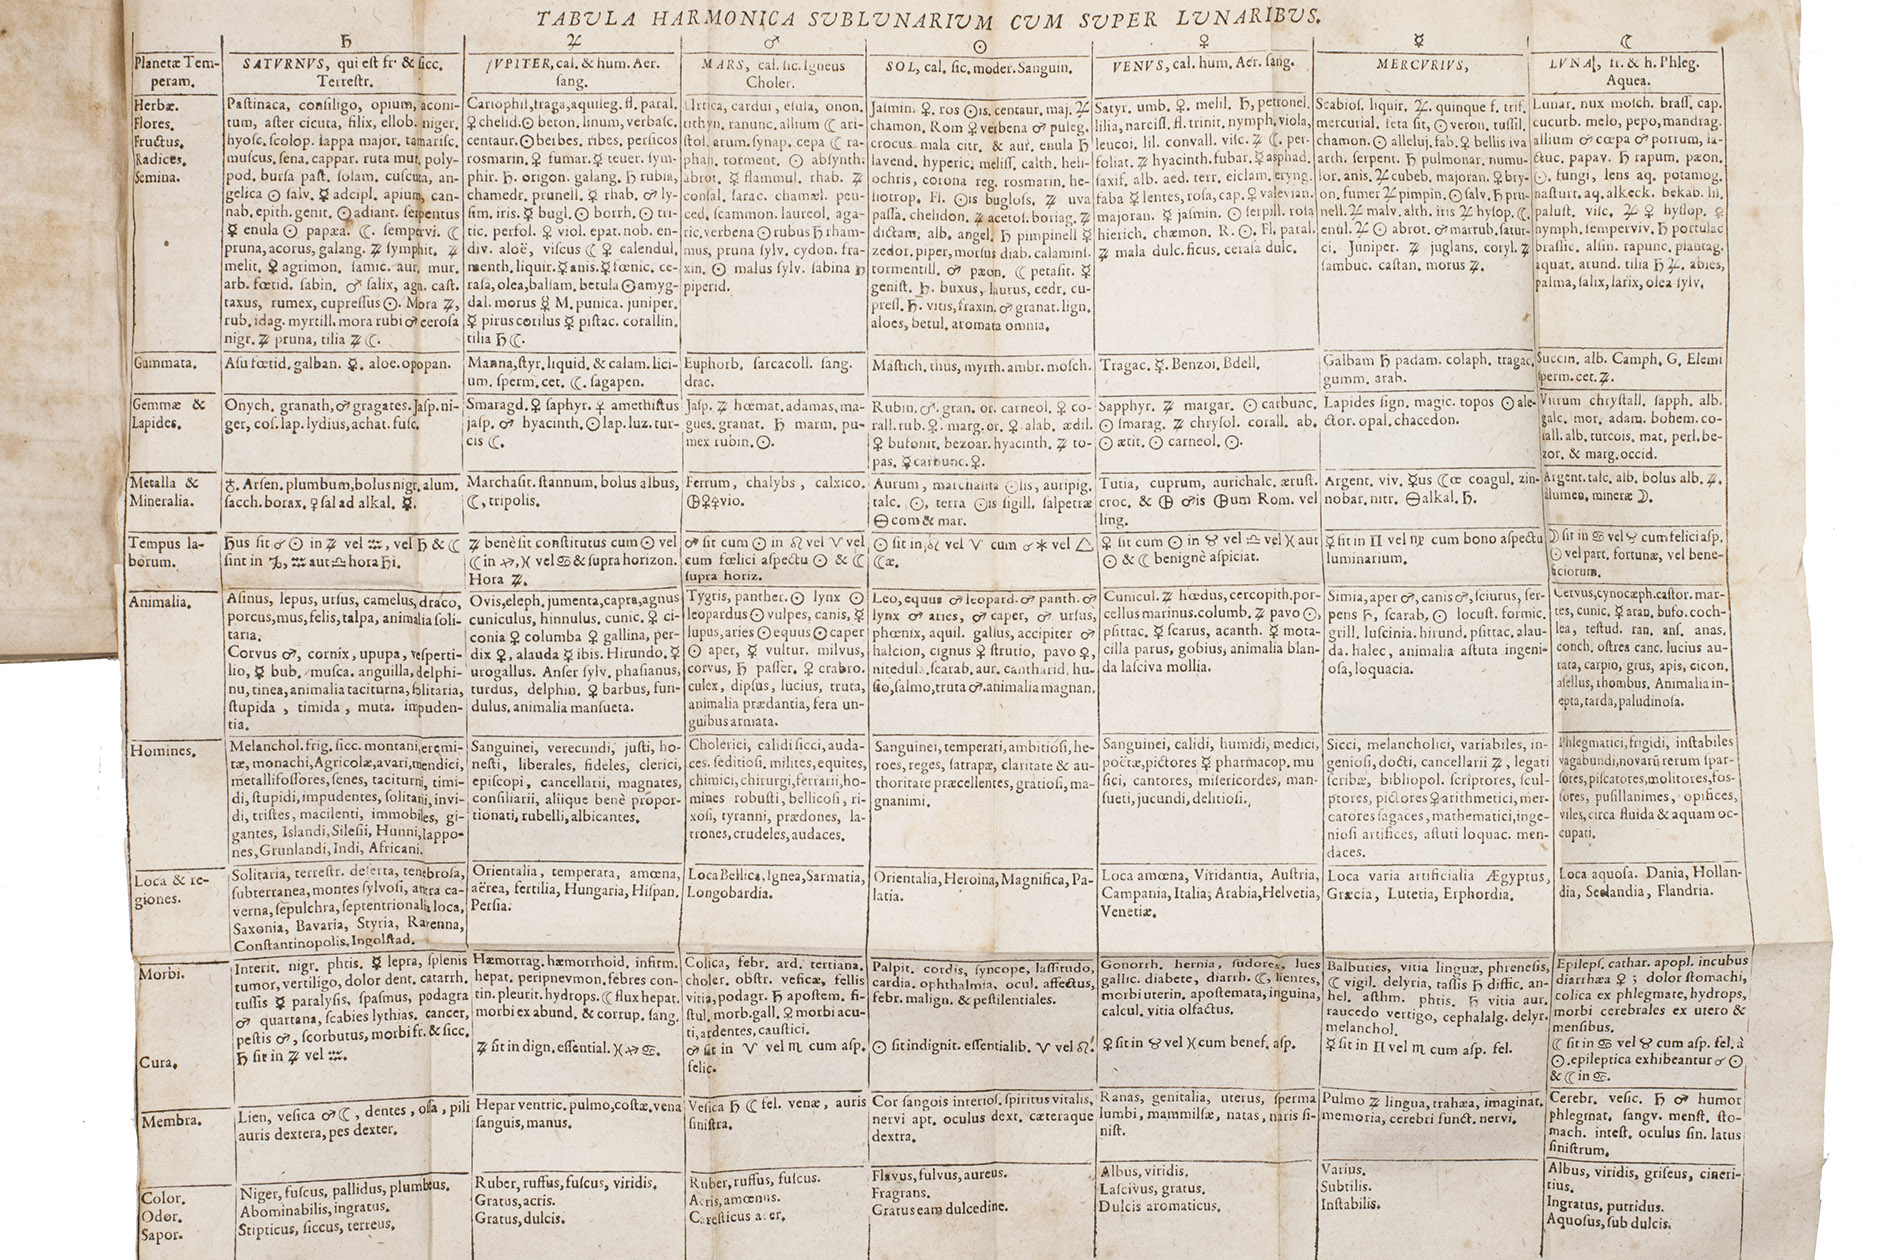 TABVLA HARMONICA SVBLVNARIVM CVM SVPER LVNARIBVS.
♄
♃
♂
☉
♀
☿
☾
Planetæ Tem-
peram.
SATVRNVS, qui eſt fr & ſicc.
Terreſtr.
JVPITER, cal. & hum. Aer.
ſang.
MARS, cal. ſic. Igneus
Choler.
SOL, cal. ſic. moder. Sanguin.
VENVS, cal. hum. Aer. ſang.
MERCVRIVS,
LVNA, fr. & h. Phleg.
Aquea.
Herbæ.
Flores.
Fructus.
Radices.
Semina.
Paſtinaca, conſiligo, opium, aconi-
tum, aſter cicuta, filix, ellob. niger.
hyoſc. ſcolop. lappa major. tamariſc.
muſcus, ſena, cappar. ruta mur. poly-
pod. burſa paſt. ſolam. cuſcuta, an-
gelica ☉ ſalv. ☿ adcipl. apium, can-
nab. epith. geniſt. ☉ adiant. ſerpentus
☿ enula ☉ papæa. ☾. ſempervi. ☾
pruna, acorus, galang. ♃ ſymphit. ♃
melit. ♀ agrimon. ſamic. aur. mur.
arb. fœtid. ſabin. ♂ ſalix, agn. caſt.
taxus, rumex, cupreſſus ☉. Mora ♃,
rub. idag. myrtill. mora rubi ♂ ceroſa
nigr. ♃ pruna, tilia ♃ ☾.
Cariophil, traga, aquileg. fl. paral.
♀ chelid. ☉ beton. linum, verbaſc.
centaur. ☉ berbes. ribes. perſicos
rosmarin. ♀ fumar. ☿ teucr. ſym-
phir. ♄. origon. galang. ♄ rubia,
chamedr. prunell. ☿ rhab. ♂ ly-
ſim. iris. ☿ bugl. ☉ borrh. ☉ tri-
tic. perfol. ♀ viol. epat. nob. en-
div. aloë, viſcus ☾ ♀ calendul.
menth. liquir. ☿ anis. ☿ fœnic. ce-
raſa, olea, balſam. betula ☉ amyg-
dal. morus ☿ M. punica. juniper.
☿ pirus corilus ☿ piſtac. corallin.
tilia ♄ ☾.
Urtica, cardui, eſula, onon.
tithyn. ranunc. allium ☾ ari-
ſtol. arum. ſynap. cepa ☾ ra-
phan. torment. ☉ abſynth.
abrot. ☿ flammul. rhab. ♃
conſal. ſarac. chamæl. peu-
ced. ſcammon. laureol. aga-
ric, verbena ☉ rubus ♄ rham-
mus, pruna ſylv. cydon. fra-
xin. ☉ malus ſylv. ſabina ♄
piperid.
Jaſmin. ♀. ros ☉is. centaur. maj. ♃
chamon. Rom ♀ verbena ♂ puleg.
crocus mala citr. & aur. enula ♄
lavend. hyperic. meliſſ. calth. heli-
ochris, corona reg. rosmarin. he-
liotrop. Fl. ☉is bugloſs. ♃ uva
paſſa. chelidon. ♃ acetoſ. boriag. ♃
dictam. alb. angel. ♄ pimpinell ☿
zedor. piper, morſus diab. calamint.
tormentill. ♂ pæon. ☾ petaſit. ☿
geniſt. ♄. buxus, laurus, cedr. cu-
preſſ. ♄. vitis, fraxin. ♂ granat. lign.
aloes, betul. aromata omnia.
Satyr. umb. ♀. melil. ♄, petronel.
lilia, narciſſ. fl. trinit. nymph. viola,
leucoi. lil. convall. viſc. ♃ ☾. per-
foliat. ♃ hyacinth. fubar. ☿ asphad.
ſaxif. alb. aed. terr. eiclam. eryng.
faba ☿ lentes, roſa, cap. ♀ valerian.
majoran. ☿ jaſmin. ☉ ſerpill. roſa
hierich. chæmon. R. ☉. Fl. paral.
♃ mala dulc. ficus, ceraſa dulc.
Scabioſ. liquir. ♃. quinque f. trif.
mercurial. ſeta ſit, ☉ veron. tuſſil.
chamon. ☉ alleluj. fab. ♀ bellis iva
arth. ſerpent. ♄ pulmonar. numu-
lor. anis. ♃ cubeb, majoran. ♀ bry-
on. fumer ♃ pimpin. ☉ ſalv. ♄ pru-
nell. ♃ malv. alth. iris ♃ hyſop. ☾.
enul. ♃ ☉ abrot. ♂ marrub. ſatur-
ci. Juniper. ♃ juglans, coryl. ♃
ſambuc. caſtan. morus ♃.
Lunar. nux moſch. braſſ. cap.
cucurb. melo, pepo, mandrag.
allium ♂ cœpa ♂ porrum, la-
ctuc. papav. ♄ rapum. pæon.
☉. fungi, lens aq. potamog.
naſturt. aq. alkeck. bekab. lil.
paluſt. viſc. ♃ ♀ hyſſop. ♀
nymph. ſemperviv. ♄ portulac
braſſic. alſin. rapunc. plantag.
aquat. arund. tilia ♄ ♃. abies,
palma, ſalix, larix, olea ſylv.
Gummata.
Aſu fœtid. galban. ☿. aloe. opopan.
Manna, ſtyr. liquid. & calam. lici-
um. ſperm. cet. ☾. ſagapen.
Euphorb. ſarcacoll. ſang.
drac.
Maſtich, thus, myrrh. ambr. moſch.
Tragac. ☿. Benzoi, Bdell.
Galbam ♄ padam. colaph. tragac.
gumm. arab.
Succin. alb. Camph. G. Elemi
ſperm. cet. ♃.
Gemmæ &
Lapides.
Onych. granath, ♂ gragates. Jaſp. ni-
ger, coſ. lap. lydius, achat. fuſc.
Smaragd. ♀ ſaphyr. ♀ amethiſtus
jaſp. ♂ hyacinth. ☉ lap. luz. tur-
cis ☾.
Jaſp. ♃ hœmat. adamas, ma-
gues. granat. ♄ marm. pu-
mex rubin. ☉.
Rubin. ♂. gran. or. carneol. ♀ co-
rall. rub. ♀. marg. or. ♀ alab. ædil.
♀ bufonit. bezoar. hyacinth. ♃ to-
pas. ☿ carbunc. ♀.
Sapphyr. ♃ margar. ☉ carbunc.
☉ ſmarag. ♃ chryſol. corall. ab.
☉ ætit. ☉ carneol. ☉.
Lapides ſign. magic. topos ☉ ale-
ctor. opal. chaccedon.
Vitrum chryſtall. ſapph. alb.
galc. mor. adam. bohem. co-
rall. alb. turcois, mat. perl. be-
zor. & marg. occid.
Metalla &
Mineralia.
♁. Arſen. plumbum, bolus nigr. alum.
ſacch. borax. ♀ ſal ad alkal. ☿.
Marchaſit. ſtannum. bolus albus,
☾, tripolis.
Ferrum, chalybs, calxico.
vio.
Aurum, marchaſita ☉lis, auripig.
talc. ☉, terra ☉is ſigill. ſalpetræ
com & mar.
Tutia, cuprum, aurichalc. æruſt.
croc. & ♂is um Rom. vel
ling.
Argent. viv. ☿us ☾æ coagul. zin-
nobar. nitr. alkal. ♄.
Argent. talc. alb. bolus alb. ♃.
alumen. mineræ ☽.
Tempus la-
borum.
♄us ſit ☌ ☉ in ♃ vel ♒, vel ♄ & ☾
ſint in ♑, ♒ aut ♎ hora ♄i.
♃ benè ſit conſtitutus cum ☉ vel
☾ in ♐, ♓ vel ♋ & ſupra horizon.
Hora ♃.
♂ ſit cum ☉ in ♌ vel ♈ vel
cum fœlici aſpectu ☉ & ☾
ſupra horiz.
☉ ſit in ♌ vel ♈ cum ☌ ⚹ vel △
☾æ.
♀ ſit cum ☉ in ♉ vel ♎ vel ♓ aut
☉ & ☾ benignè aſpiciat.
☿ ſit in ♊ vel ♍ cum bono aſpectu
luminarium.
☽ ſit in ♋ vel ♉ cum felici aſp.
☉ vel part. fortunæ, vel bene-
ficiorum.
Animalia.
Aſinus, lepus, urſus, camelus, draco,
porcus, mus, felis, talpa, animalia ſoli-
taria.
Corvus ♂, cornix, upupa, veſperti-
lio, ☿ bub. muſca. anguilla, delphi-
nu, tinea, animalia taciturna, ſolitaria,
ſtupida, timida, muta. impuden-
tia.
Ovis, eleph. jumenta, capra, agnus
cuniculus, hinnulus. cunic. ♀ ci-
conia ♀ columba ♀ gallina, per-
dix ♀, alauda ☿ ibis. Hirundo. ☿
urogallus. Anſer ſylv. phaſianus,
turdus, delphin. ♀ barbus, fun-
dulus, animalia manſueta.
Tygris, panther. ☉ lynx ☉
leopardus ☉ vulpes, canis, ☿
lupus, aries ☉ equus ☉ caper
☉ aper, ☿ vultur. milvus,
corvus, ♄ paſſer. ♀ crabro.
culex, dipſus, lucius, truta,
animalia prædantia, fera un-
guibus armata.
Leo, equus ♂ leopard. ♂ panth. ♂
lynx ♂ aries, ♂ caper, ♂ urſus,
phœnix, aquil. gallus, accipiter ♂
halcion, cignus ♀ ſtrutio, pavo ♀,
nitedula, ſcarab. aur. cantharid. hu-
ſio, ſalmo, truta ♂. animalia magnan.
Cunicul. ♃ hœdus, cercopith. por-
cellus marinus. columb. ♃ pavo ☉,
pſittac. ☿ ſcarus, acanth. ☿ mota-
cilla parus, gobius, animalia blan-
da laſciva mollia.
Simia, aper ♂, canis ♂, ſciurus, ſer-
pens ♄, ſcarab. ☉ locuſt. formic.
grill. luſcinia. hirund. pſittac. alau-
da. halec, animalia aſtuta ingeni-
oſa, loquacia.
Cervus, cynocæph. caſtor. mar-
tes, cunic. ☿ aran. bufo. coch-
lea, teſtud. ran. anſ. anas.
conch. oſtrea. canc. lucius au-
rata, carpio, grus, apis, cicon.
aſellus, rhombus. Animalia in-
epta, tarda, paludinoſa.
Homines.
Melanchol. frig. ſicc. montani, eremi-
tæ, monachi, Agricolæ, avari, mendici,
metallifoſſores, ſenes, taciturni, timi-
di, ſtupidi, impudentes, ſolitarii, invi-
di, triſtes, macilenti, immobiles, gi-
gantes, Islandi, Sileſii, Hunni, lappo-
nes, Grunlandi, Indi, Africani.
Sanguinei, verecundi, juſti, ho-
neſti, liberales, fideles, clerici,
epiſcopi, cancellarii, magnates,
conſiliarii, aliique benè propor-
tionati, rubelli, albicantes.
Cholerici, calidi ſicci, auda-
ces. ſeditioſi. milites, equites,
chimici, chirurgi, ferrarii, ho-
mines robuſti, bellicoſi, ri-
xoſi, tyranni, prædones, la-
trones, crudeles, audaces.
Sanguinei, temperati, ambitioſi, he-
roes, reges, ſatrapæ, claritate & au-
thoritate præcellentes, gratioſi, ma-
gnanimi.
Sanguinei, calidi, humidi, medici,
poëtæ, pictores ☿ pharmacop. mu
ſici, cantores, miſericordes, man-
ſueti, jucundi, delitioſi.
Sicci, melancholici, variabiles, in-
genioſi, docti, cancellarii ♃, legati
ſcribæ, bibliopol. ſcriptores, ſcul-
ptores, pictores ♀ arithmetici, mer-
catores ſagaces, mathematici, inge-
nioſi artifices, aſtuti loquac. men-
daces.
Phlegmatici, frigidi, inſtabiles
vagabundi, novarũ rerum ſpar-
ſores, piſcatores, molitores, foſ-
ſores, puſillanimes, opifices,
viles, circa fluida & aquam oc-
cupati.
Loca & re-
giones.
Solitaria, terreſtr. deſerta, tenebroſa,
ſubterranea, montes ſylvoſi, antra ca-
verna, ſepulchra, ſeptentrionalia loca,
Saxonia, Bavaria, Styria, Ravenna,
Conſtantinopolis, Ingolſtad.
Orientalia, temperata, amœna,
aërea, fertilia, Hungaria, Hiſpan.
Perſia.
Loca Bellica, Ignea, Sarmatia,
Longobardia.
Orientalia, Heroina, Magnifica, Pa-
latia.
Loca amœna, Viridantia, Auſtria,
Campania, Italia; Arabia, Helvetia,
Venetiæ.
Loca varia artificialia Ægyptus,
Græcia, Lutetia, Erphordia.
Loca aquoſa. Dania, Hollan-
dia, Seelandia, Flandria.
Morbi.
Cura.
Interit. nigr. phtis. ☿ lepra, ſplenis
tumor, vertiligo, dolor dent. catarrh.
tuſſis ☿ paralyſis, ſpaſmus, podagra
♂ quartana, ſcabies lythias. cancer,
peſtis ♂, ſcorbutus, morbi fr. & ſicc.
♄ ſit in ♃ vel ♒.
Hæmotrag. hæmorrhoid. infirm.
hepat. peripnevmon. febres con-
tin. pleurit. hydrops. ☾ flux hepat.
morbi ex abund. & corrup. ſang.
♃ ſit in dign. eſſential. ♓ ♐ ♋.
Colica, febr. ard. tertiana.
choler. obſtr. veſicæ, fellis
vitia, podagr. ♄ apoſtem. fi-
ſtul. morb. gall. ♀ morbi acu-
ti, ardentes, cauſtici.
♂ ſit in ♈ vel ♏ cum aſp.
felic.
Palpit. cordis, ſyncope, laſſitudo,
cardia. ophthalmia, ocul. affectus,
febr. malign. & peſtilentiales.
☉ ſit in dignit. eſſentialib. ♈ vel ♌.
Gonorrh. hernia, ſudores, lues
gallic. diabete, diarrh. ☾, lientes,
morbi uterin. apoſtemata, inguina,
calcul. vitia olfactus.
♀ ſit in ♉ vel ♓ cum benef. aſp.
Balbuties, vitia linguæ, phreneſis,
☾ vigil. delyria, taſſis ♄ diffic. an-
hel. aſthm. phtis. ♄ vitia aur.
raucedo vertigo, cephalalg. delyr.
melanchol.
☿ ſit in ♊ vel ♏ cum aſp. fel.
Epilepſ. cathar. apopl. incubus
diarrhæa ♀; dolor ſtomachi,
colica ex phlegmate, hydrops,
morbi cerebrales ex utero &
menſibus.
☾ ſit in ♋ vel ♉ cum aſp. fel. à
☉. epileptica exhibeantur ☌ ☉
& ☾ in ♋.
Membra.
Lien, veſica ♂ ☾, dentes, oſſa, pili
auris dextera, pes dexter.
Hepar ventric. pulmo, coſtæ, vena
ſanguis, manus.
Veſica ♄ ☾ fel. venæ, auris
ſiniſtra.
Cor ſangois interioſ. ſpiritus vitalis,
nervi apt. oculus dext. cæteraque
dextra.
Ranas, genitalia, uterus, ſperma
lumbi, mammilſæ, natas, naris ſi-
niſt.
Pulmo ♃ lingua, trahæa, imaginat.
memoria, cerebri funct. nervi.
Cerebr. veſic. ♄ ♂ humor
phlegmat. ſangv. menſt. ſto-
mach. inteſt. oculus ſin. latus
ſiniſtrum.
Color.
Odor.
Sapor.
Niger, fuſcus, pallidus, plumbeus.
Abominabilis, ingratus.
Stipticus, ſiccus, terreus.
Ruber, ruffus, fuſcus, viridis.
Gratus, acris.
Gratus, dulcis.
Ruber, ruffus, fuſcus.
Acris, amœnus.
acer.
Flavus, fulvus, aureus.
Fragrans.
Gratus eam dulcedine.
Albus, viridis.
Laſcivus, gratus.
Dulcis aromaticus.
Varius.
Subtilis.
Inſtabilis.
Albus, viridis, griſeus, cineri-
tius.
Ingratus, putridus.
Aquoſus, ſub dulcis.